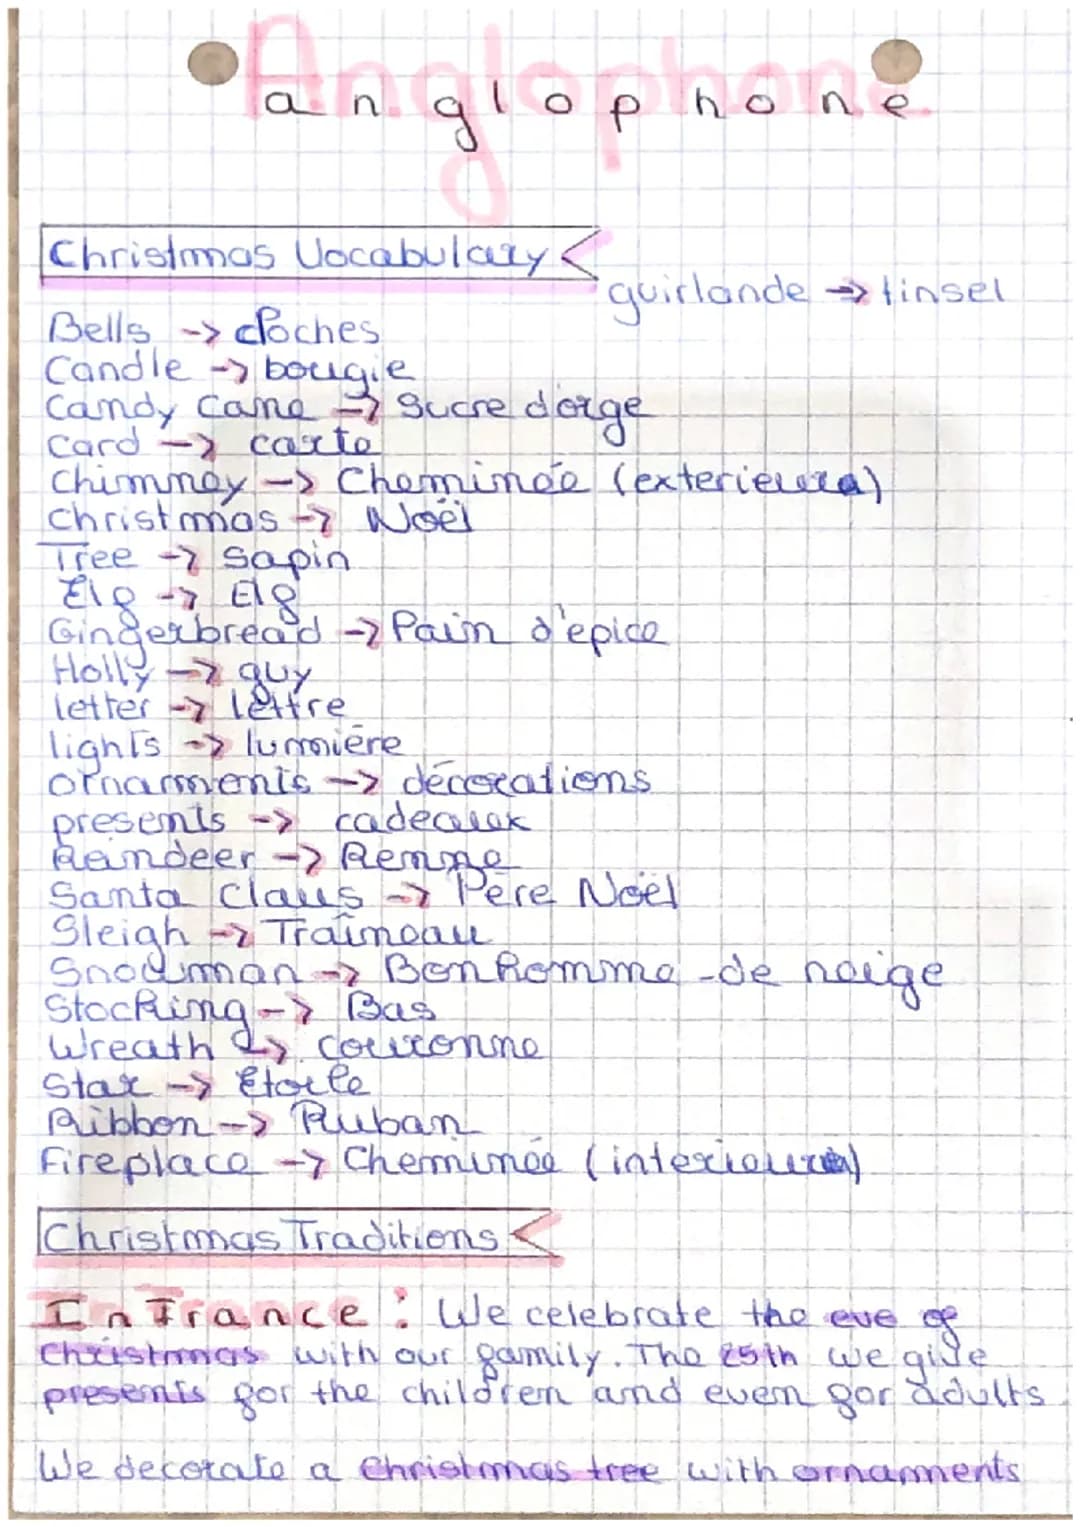 Anglophone
anglophone
Christmas Vocabulary
guirlande -> tinsel
Bells -> cloches
Candle -> bougie
Candy Cane -> Sucre d'orge
Card -> carte
Chimney -> Cheminée (exterieure)
Christmas -> Noël
Tree -> sapin
Elf -> Elf
Gingerbread -> Pain d'epice
Holly -> guy
letter -> lettre
lights -> lumière
ornaments -> décorations
presents -> cadeaux
Reindeer -> Renne
Santa Claus -> Père Noël
Sleigh -> Traîneau
Snowman -> Bonhomme-de neige
Stocking -> Bas
Wreath -> couronne
Star -> Étoile
Ribbon -> Ruban
Fireplace -> Cheminée (interieure)
Christmas Traditions
In France : We celebrate the eve of
Christmas with our family. The 25th we give
presents for the children and even for adults
We decorate a Christmas tree with ornaments